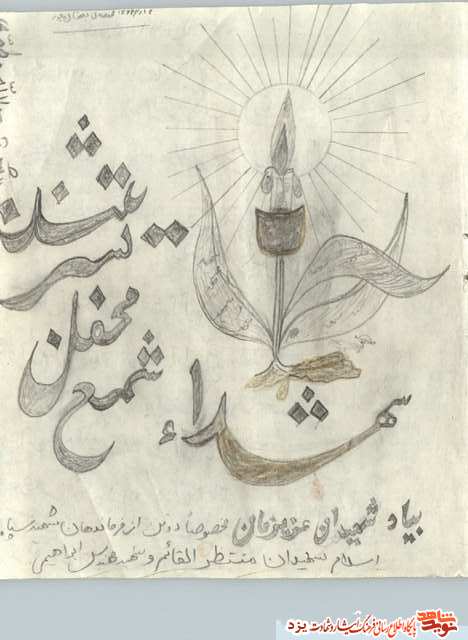 شهداء
شمع
محفل
بشریتند
بیاد شهیدان عزیزمان مخصوصاً دو تن از فرماندهان شهید سپاه
اسلام شهیدان منتظر القائم و شهید ابراهیمی
نوید شاهد
پایگاه اطلاع رسانی فرهنگ ایثار و شهادت یزد